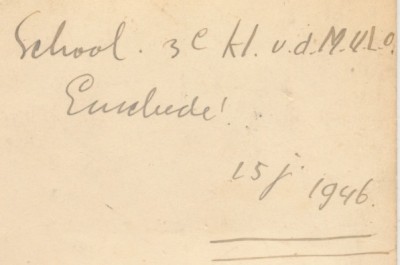 School. 3e kl. v.d. M.U.L.O.
Enschede!
15 j 1946.